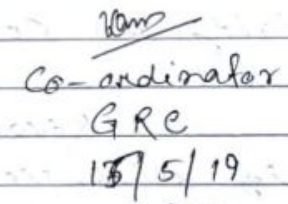 Co-ordinator
GRC
15/5/19